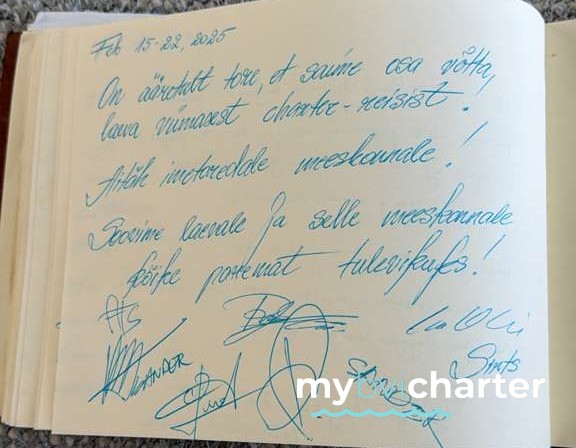 Feb 15-22, 2025
On ääretult tore, et saime osa võtta
laeva viimasest charter-reisist!
Aitäh imetoredale meeskonnale!
Soovime laevale ja selle meeskonnale
kõike paremat tulevikuks!
Sints
SANDER
mybalicharter